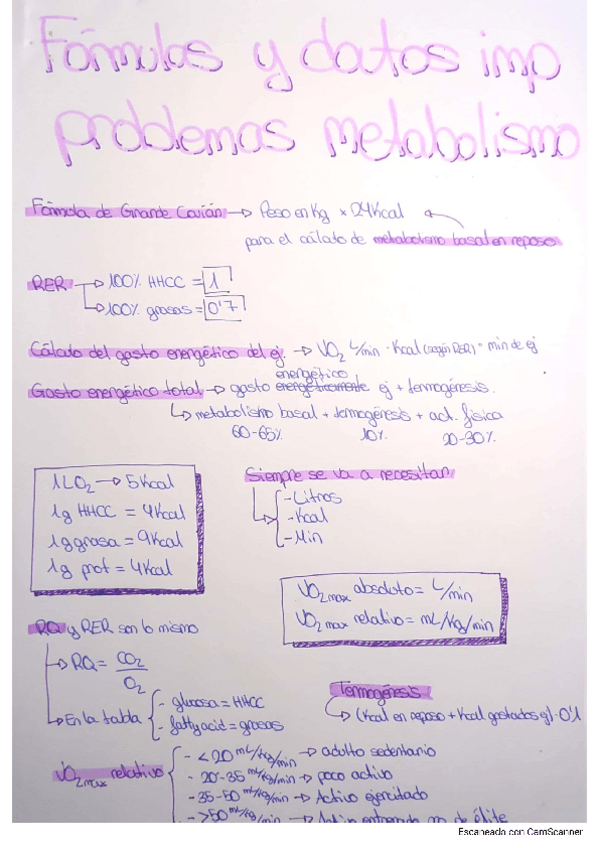 Fórmulas y datos imp
problemas metabolismo
Fórmula de Grande Covián → Peso en Kg × 24Kcal
para el cálculo de metabolismo basal en reposo
RER → 100% HHCC = 1
→ 100% grasas = 0'7
Cálculo del gasto energético del ej. → VO2 L/min · Kcal (según RER) · min de ej
Gasto energético total → gasto energético ej + termogénesis.
↳ metabolismo basal + termogénesis + act. física
60-65% 10% 20-30%
1LO2 → 5Kcal
1g HHCC = 4Kcal
1g grasa = 9Kcal
1g prot = 4Kcal
Siempre se va a necesitar
- Litros
- Kcal
- Min
VO2max absoluto = L/min
VO2max relativo = mL/Kg/min
RQ y RER son lo mismo
→ RQ = CO2
O2
→ En la tabla
- glucosa = HHCC
- fatty acid = grasas
Termogénesis
→ (Kcal en reposo + Kcal gastados ej) · 0'1
VO2max relativo
- <20 mL/Kg/min → adulto sedentario
- 20-35 mL/Kg/min → poco activo
- 35-50 mL/Kg/min → Activo ejercitado
- >50 mL/Kg/min → Activo entrenado no de élite
Escaneado con CamScanner